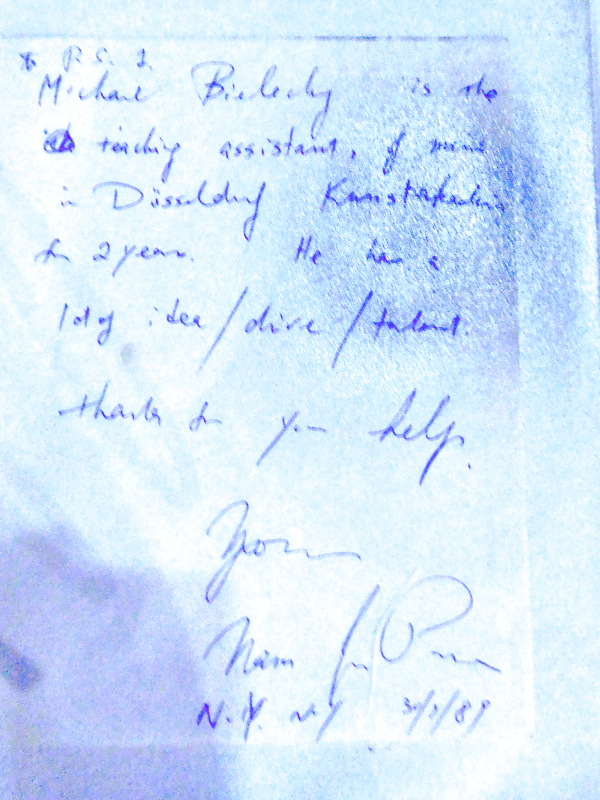 * P.S. 2.
Michael Bielecky is the
teaching assistant, of mine
in Düsseldorf Kunstakademie
for 2 years. He has a
lot of idea / drive / talent.
thanks for your help.
Yours
Nam June Paik
N.Y. N.Y 3/1/89